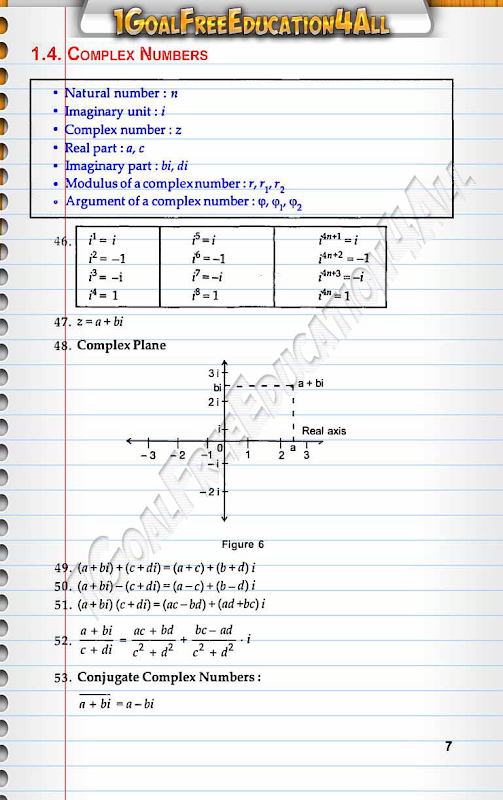 1GoalFreeEducation4All
1.4. Complex Numbers
• Natural number : n
• Imaginary unit : i
• Complex number : z
• Real part : a, c
• Imaginary part : bi, di
• Modulus of a complex number : r, r₁, r₂
• Argument of a complex number : φ, φ₁, φ₂
46. i¹ = i    i⁵ = i    i⁴ⁿ⁺¹ = i
i² = -1    i⁶ = -1    i⁴ⁿ⁺² = -1
i³ = -i    i⁷ = -i    i⁴ⁿ⁺³ = -i
i⁴ = 1    i⁸ = 1    i⁴ⁿ = 1
47. z = a + bi
48. Complex Plane
3 i
bi
a + bi
2 i
i
Real axis
0
-3 -2 -1 1 2 a 3
-i
-2 i
Figure 6
49. (a + bi) + (c + di) = (a + c) + (b + d) i
50. (a + bi) − (c + di) = (a − c) + (b − d) i
51. (a + bi) (c + di) = (ac − bd) + (ad + bc) i
52. (a + bi)/(c + di) = (ac + bd)/(c² + d²) + (bc − ad)/(c² + d²) · i
53. Conjugate Complex Numbers :
a̅ ̅+̅ ̅b̅i̅ = a − bi
7
1GoalFreeEducation4All